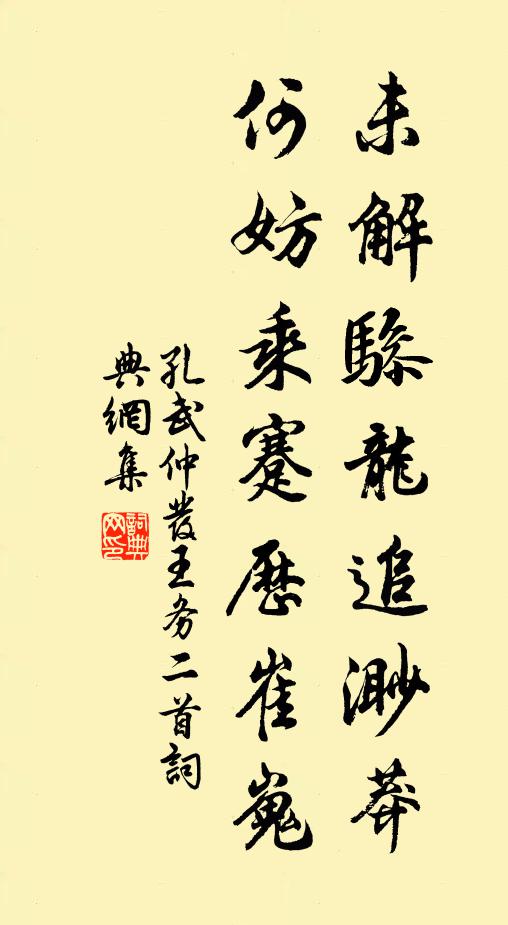 未解驂龍追渺莽
何妨乘蹇歷崔嵬
孔武仲發王务二首詞
典網集
詞典
网印